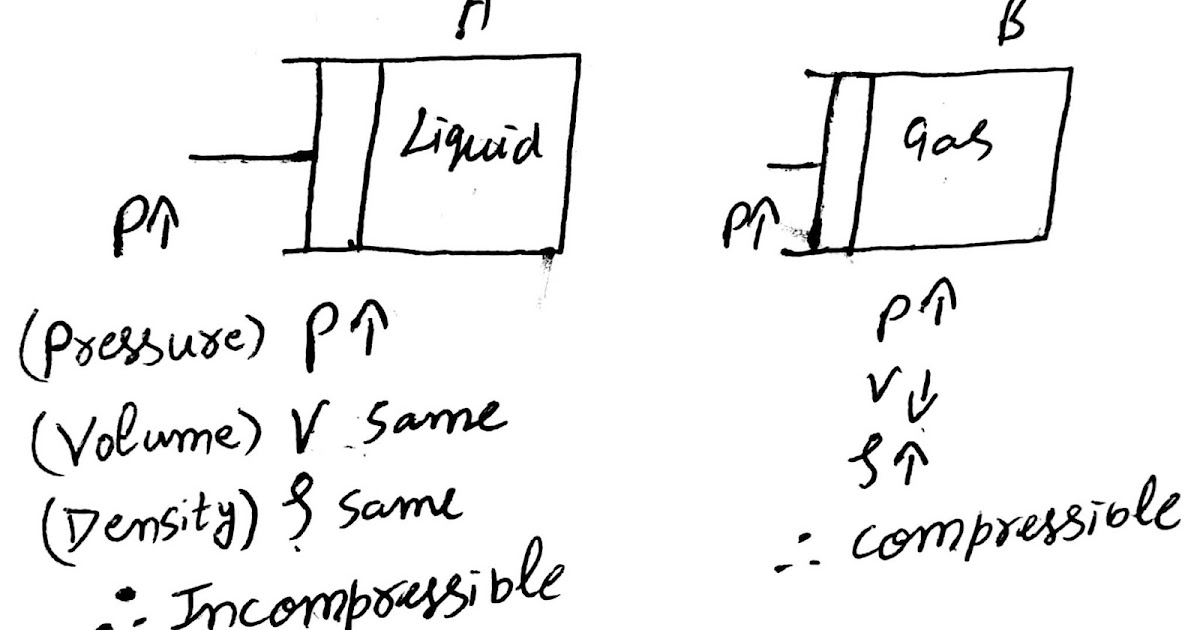 A
B
Liquid
Gas
P↑
P↑
(Pressure) P↑
P↑
(Volume) V same
V↓
(Density) ρ same
ρ↑
∴ Incompressible
∴ compressible